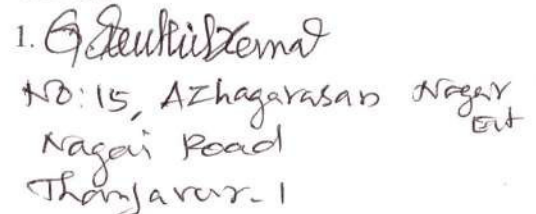 1. G. Senthilkumar
No: 15, Azhagarasan Nagar
Ext
Nagai Road
Thanjavur-1